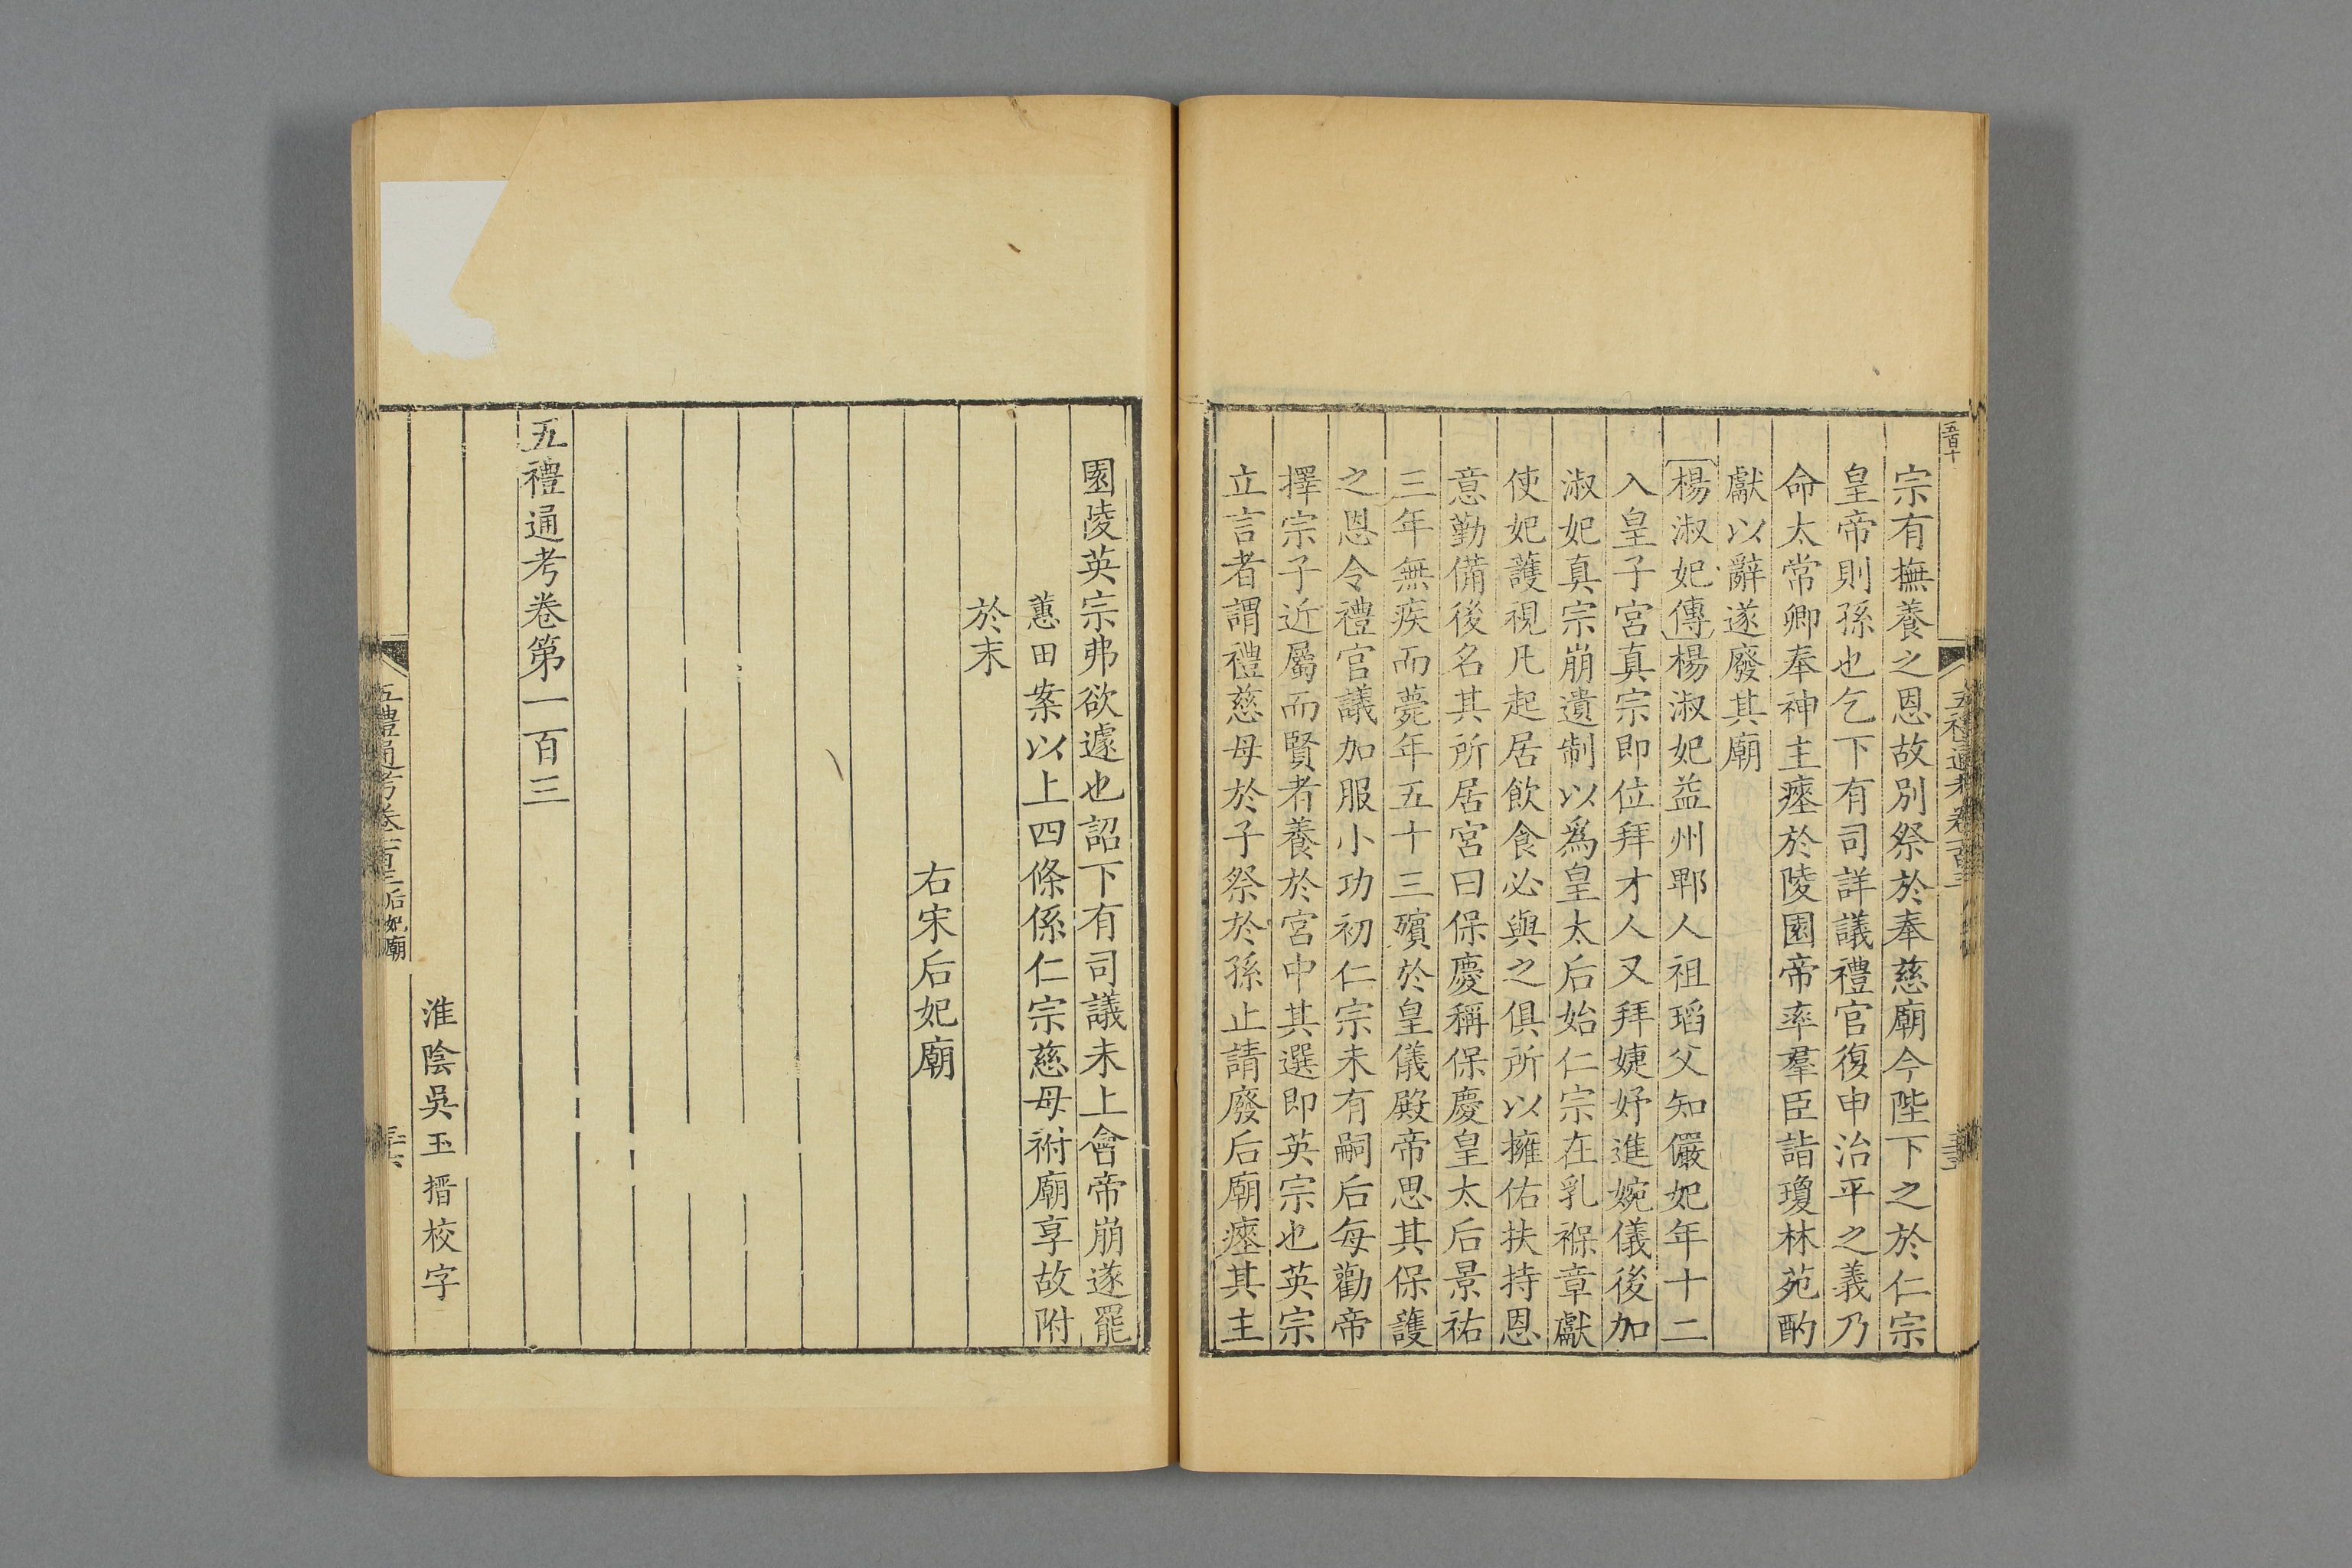 五百十
宗有撫養之恩故別祭於奉慈廟今陛下之於仁宗
皇帝則孫也乞下有司詳議禮官復申治平之義乃
命太常卿奉神主瘞於陵園帝率羣臣詣瓊林苑酌
獻以辭遂廢其廟
楊淑妃傳楊淑妃益州郫人祖瑫父知儼妃年十二
入皇子宮真宗即位拜才人又拜婕妤進婉儀後加
淑妃真宗崩遺制以爲皇太后始仁宗在乳褓章獻
使妃護視凡起居飲食必與之俱所以擁佑扶持恩
意勤備後名其所居宮曰保慶稱保慶皇太后景祐
三年無疾而薨年五十三殯於皇儀殿帝思其保護
之恩令禮官議加服小功初仁宗未有嗣后每勸帝
擇宗子近屬而賢者養於宮中其選即英宗也英宗
立言者謂禮慈母於子祭於孫止請廢后廟瘞其主
園陵英宗弗欲遽也詔下有司議未上會帝崩遂罷
蕙田案以上四條係仁宗慈母祔廟享故附
於末
右宋后妃廟
五禮通考卷第一百三
淮陰吳玉搢校字
五禮通考卷一百三后妃廟